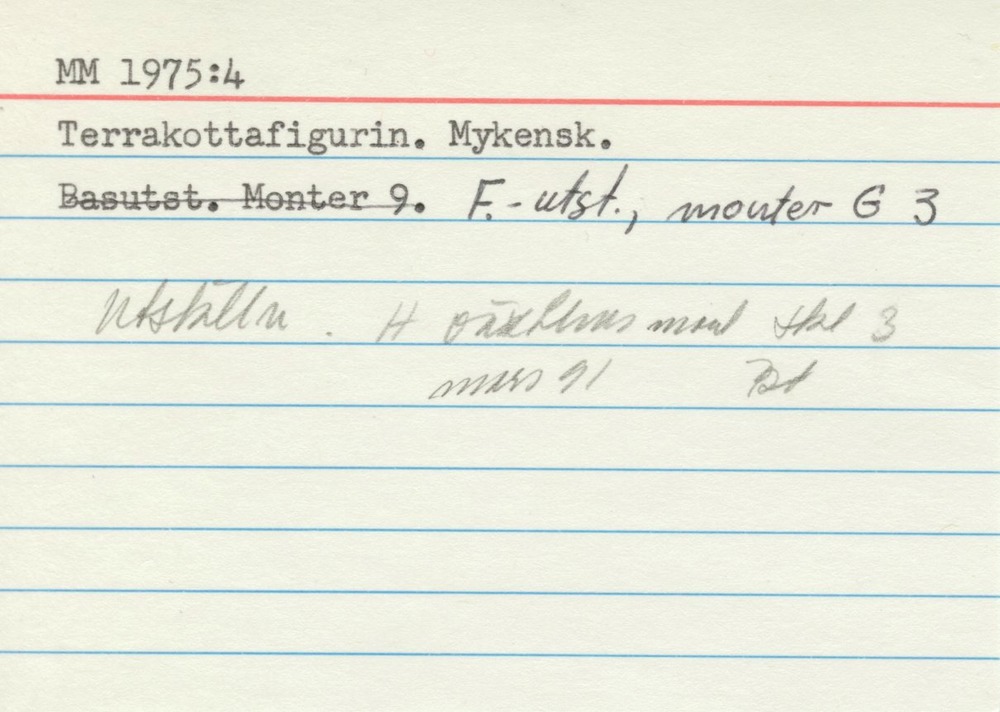 MM 1975:4
Terrakottafigurin. Mykensk.
Basutst. Monter 9. F.-utst., monter G 3
Utställn. H 3
mars 91